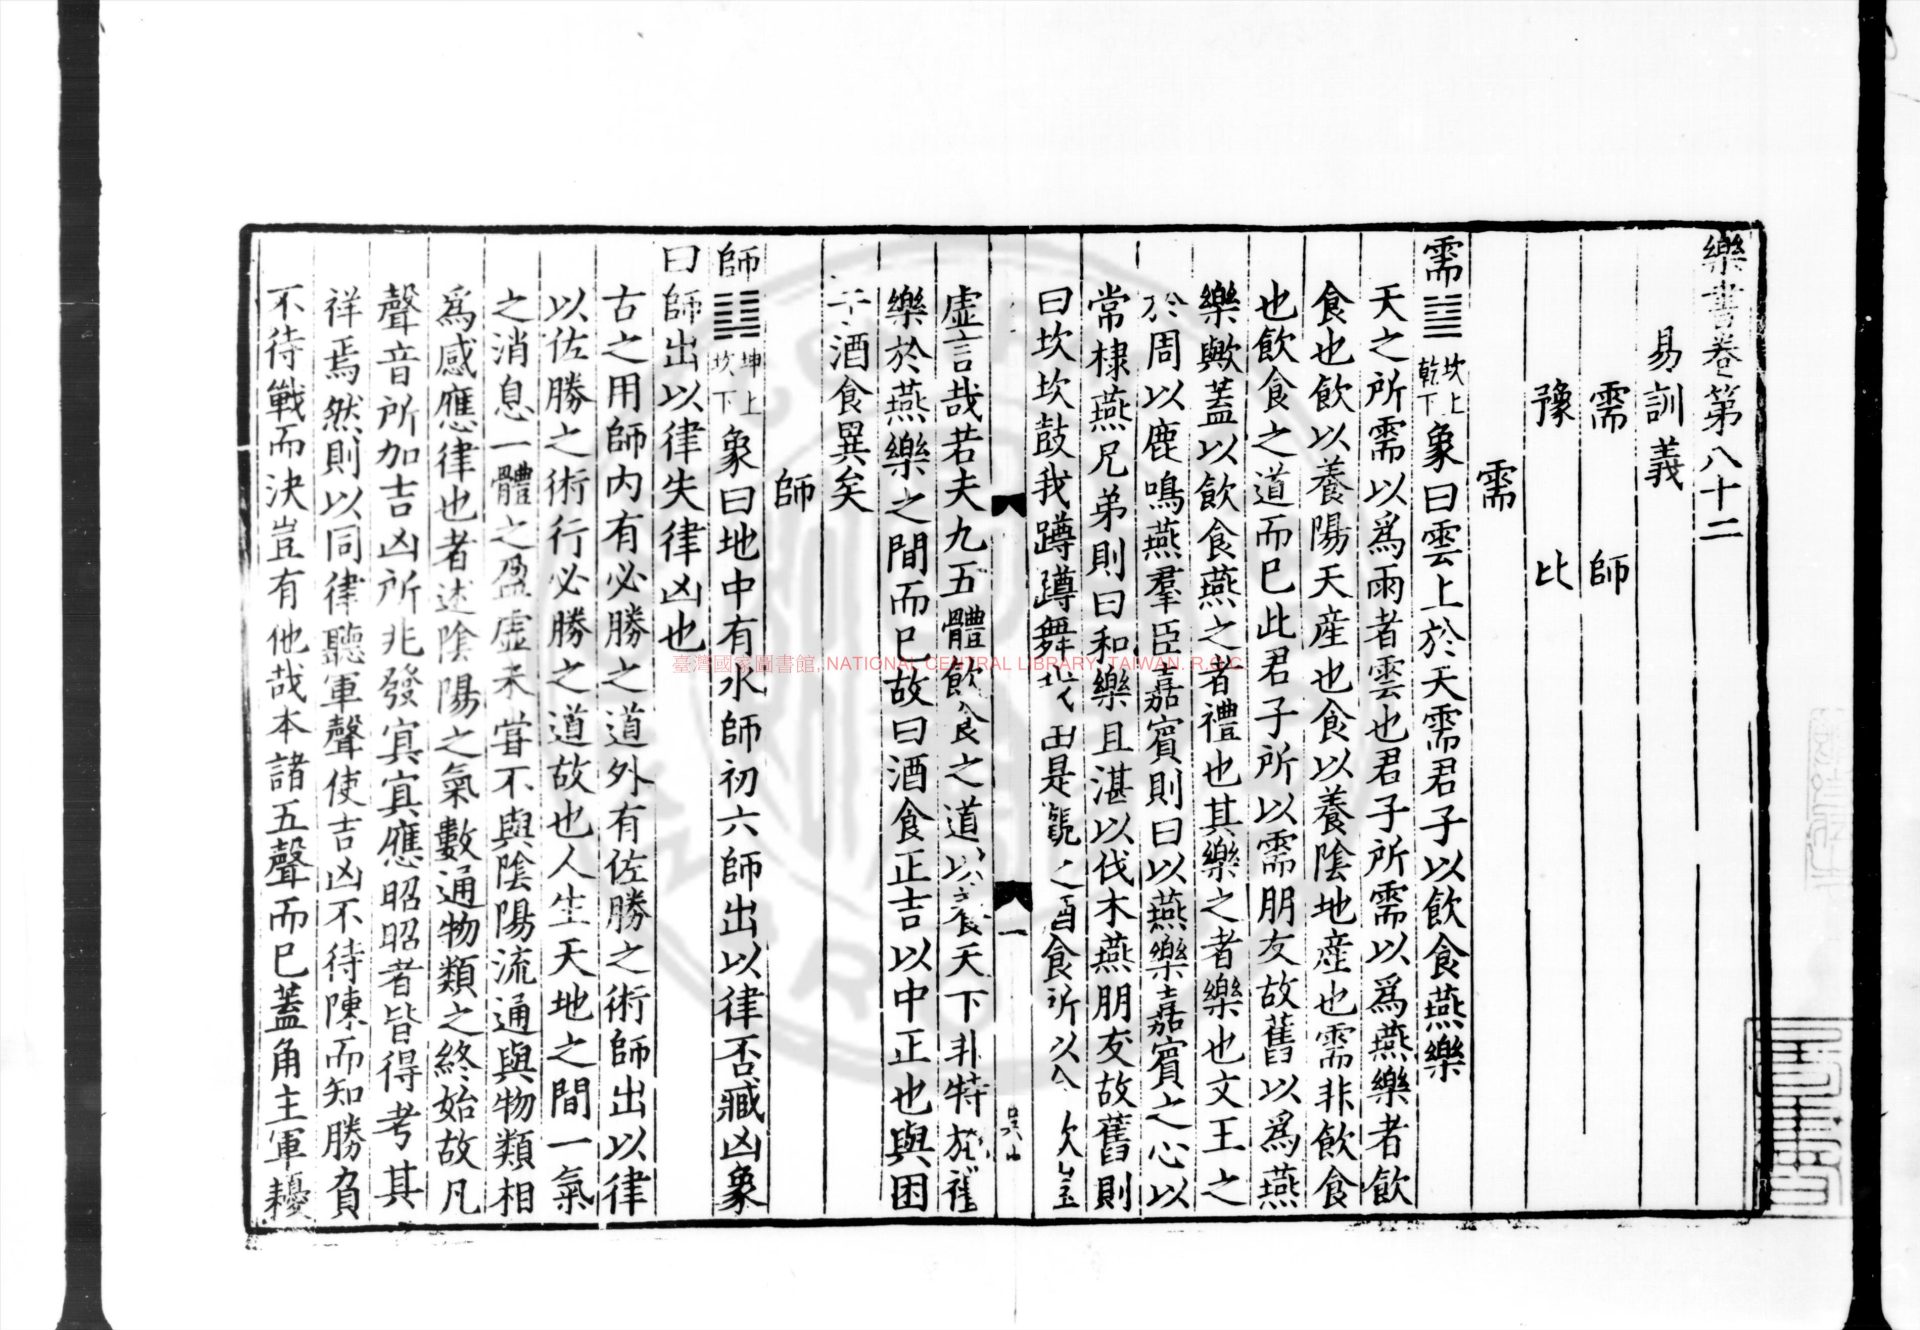 樂書卷第八十二
易訓義
需 師
豫 比
需
需䷄坎上乾下象曰雲上於天需君子以飲食燕樂
天之所需以爲雨者雲也君子所需以爲燕樂者飲
食也飲以養陽天産也食以養陰地産也需非飲食
也飲食之道而已此君子所以需朋友故舊以爲燕
樂歟蓋以飲食燕之者禮也其樂之者樂也文王之
於周以鹿鳴燕羣臣嘉賓則曰以燕樂嘉賓之心以
常棣燕兄弟則曰和樂且湛以伐木燕朋友故舊則
曰坎坎鼓我蹲蹲舞我由是觀之酒食所以合
虛言哉若夫九五體飲食之道以養天下非特於
樂於燕樂之間而已故曰酒食正吉以中正也與困
于酒食異矣
師
師䷆坤上坎下象曰地中有水師初六師出以律否臧凶象
曰師出以律失律凶也
古之用師内有必勝之道外有佐勝之術師出以律
以佐勝之術行必勝之道故也人生天地之間一氣
之消息一體之盈虛未甞不與陰陽流通與物類相
爲感應律也者述陰陽之氣數通物類之終始故凡
聲音所加吉凶所兆發寘寘應昭昭者皆得考其
祥焉然則以同律聽軍聲使吉凶不待陳而知勝負
不待戰而決豈有他哉本諸五聲而已蓋角主軍擾
一
臺灣國家圖書館, NATIONAL CENTRAL LIBRARY, TAIWAN. R.O.C.